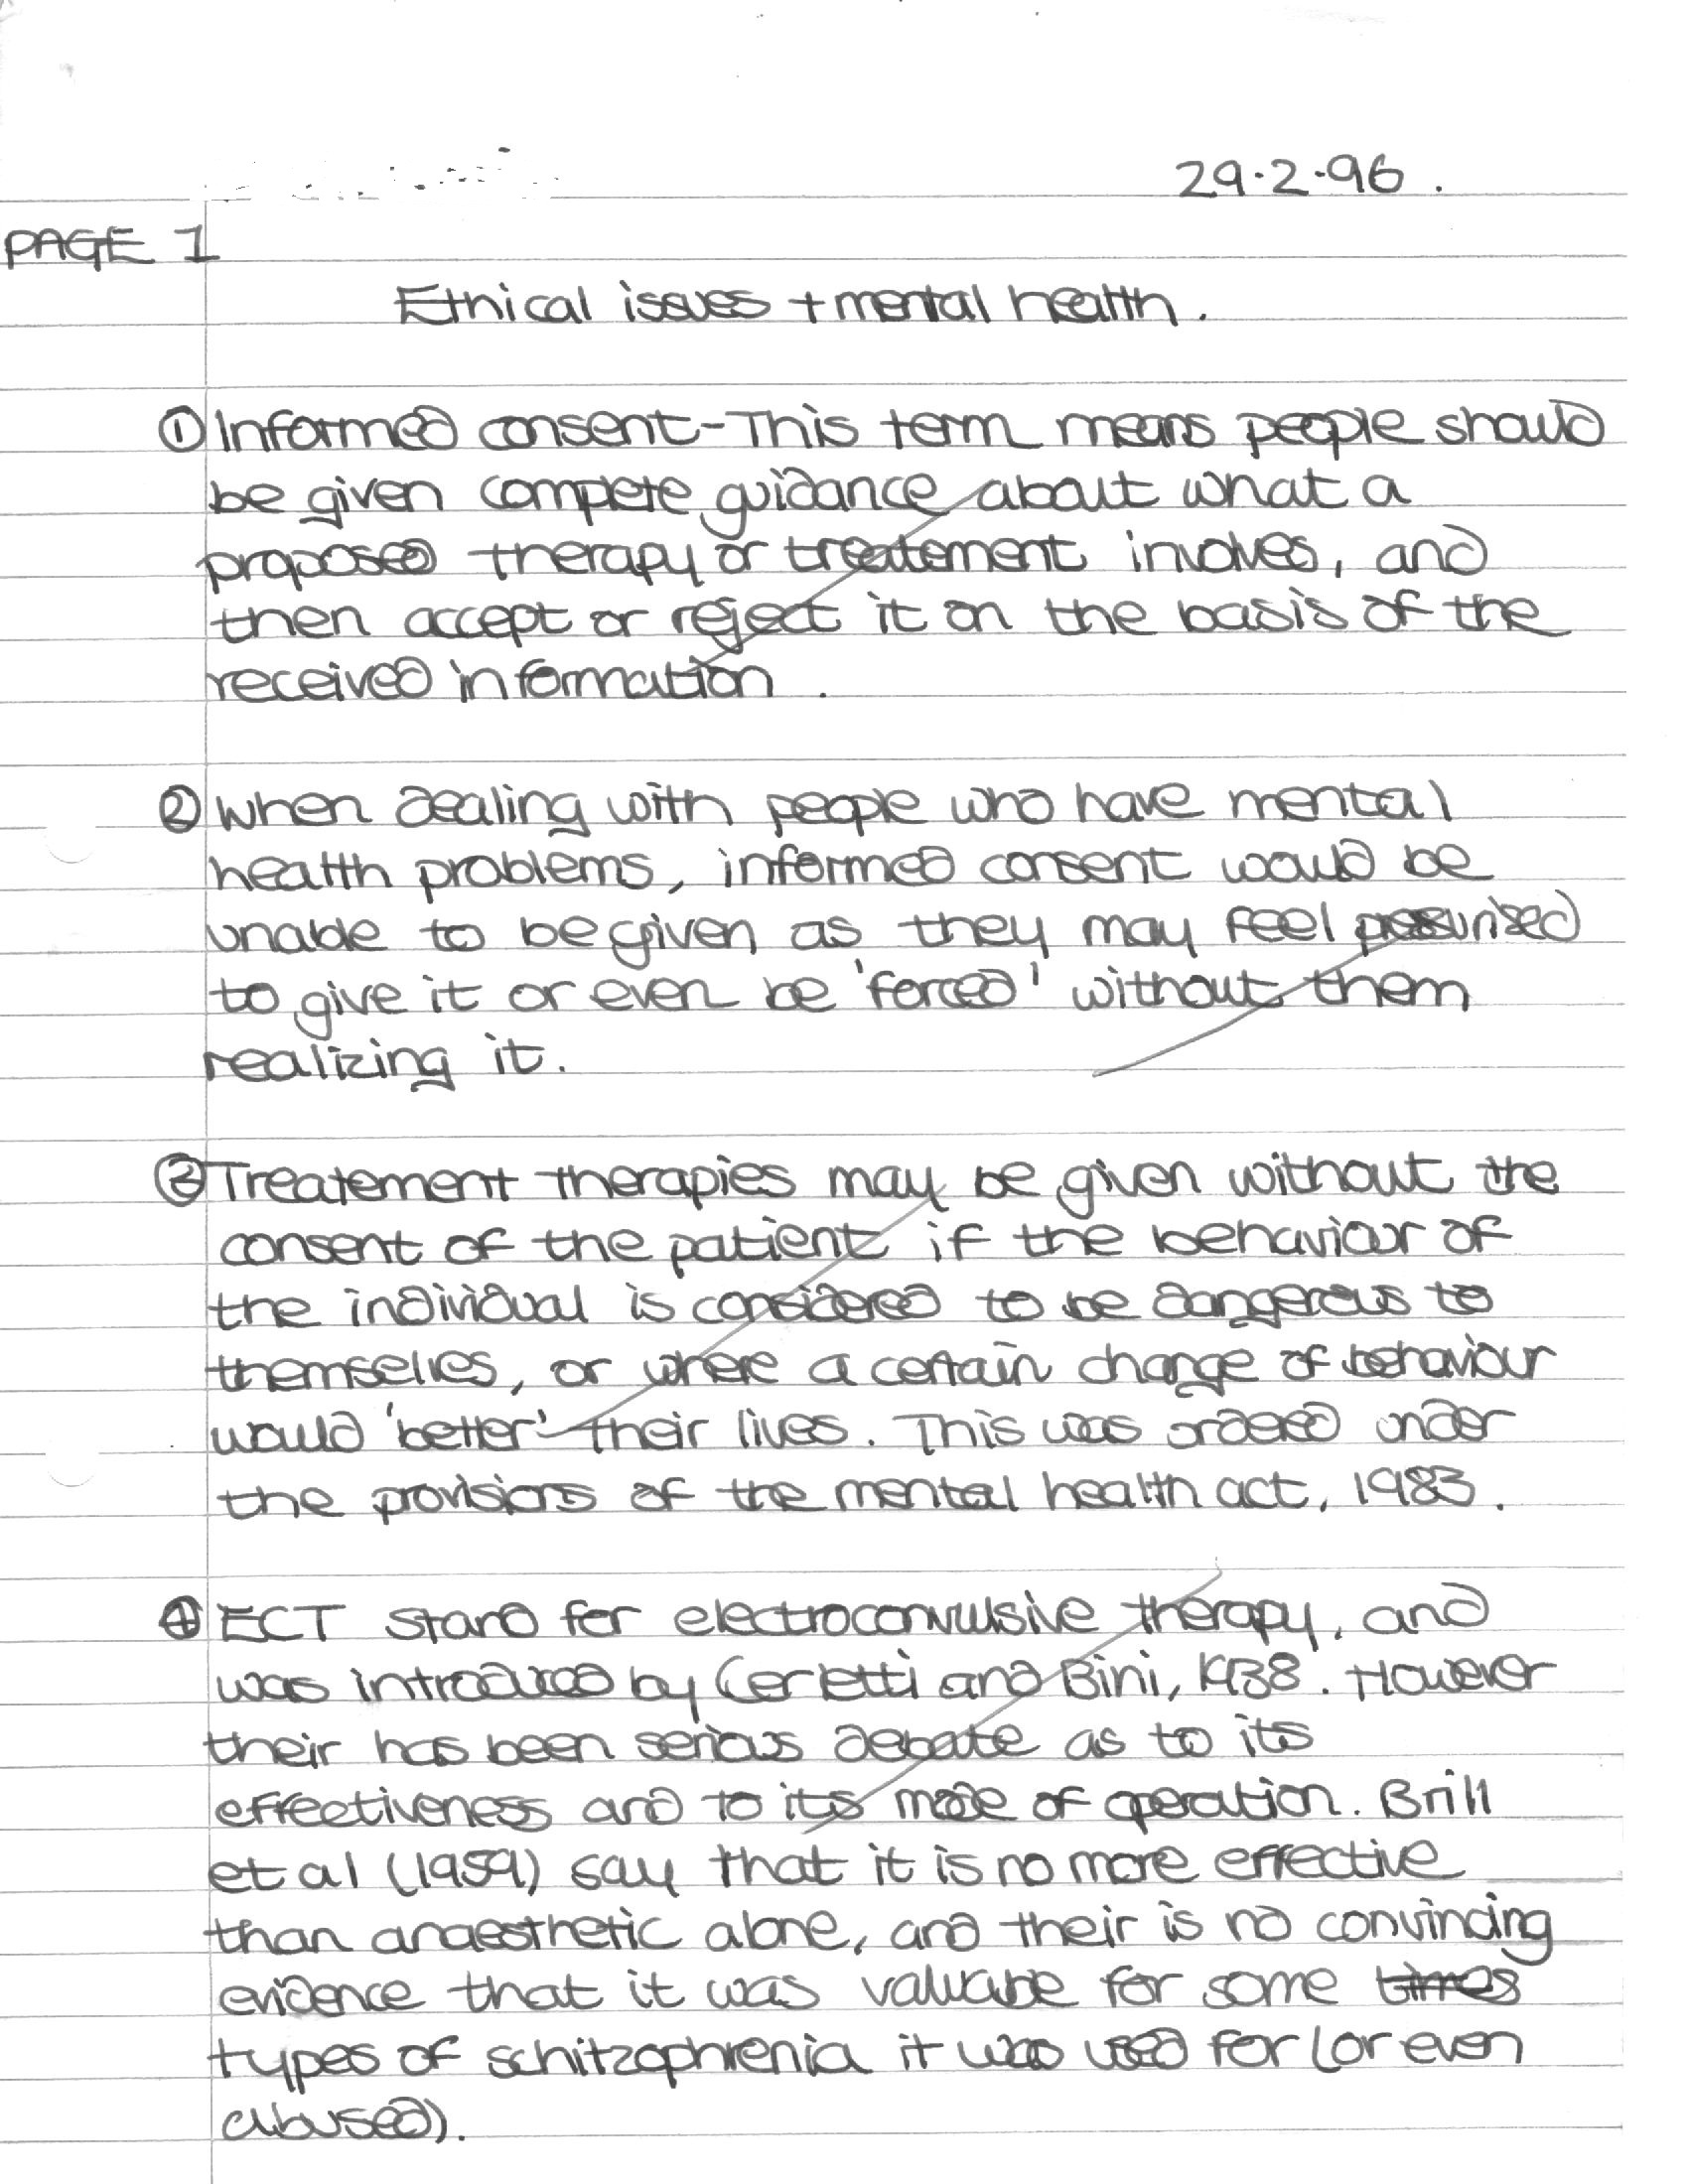 29.2.96.
PAGE 1
Ethical issues + mental health.
① Informed consent - This term means people should
be given complete guidance about what a
proposed therapy or treatement involves, and
then accept or reject it on the basis of the
received information.
② When dealing with people who have mental
health problems, informed consent would be
unable to be given as they may feel pressurised
to give it or even be 'forced' without them
realizing it.
③ Treatement therapies may be given without the
consent of the patient if the behaviour of
the individual is considered to be dangerous to
themselves, or where a certain change of behaviour
would 'better' their lives. This was ordered under
the provisions of the mental health act, 1983.
④ ECT stand for electroconvulsive therapy, and
was introduced by Cerletti and Bini, 1938. However
their has been serious debate as to its
effectiveness and to its mode of operation. Brill
et al (1959) say that it is no more effective
than anaesthetic alone, and their is no convincing
evidence that it was valuable for some times
types of schitzophrenia it was used for (or even
abused).